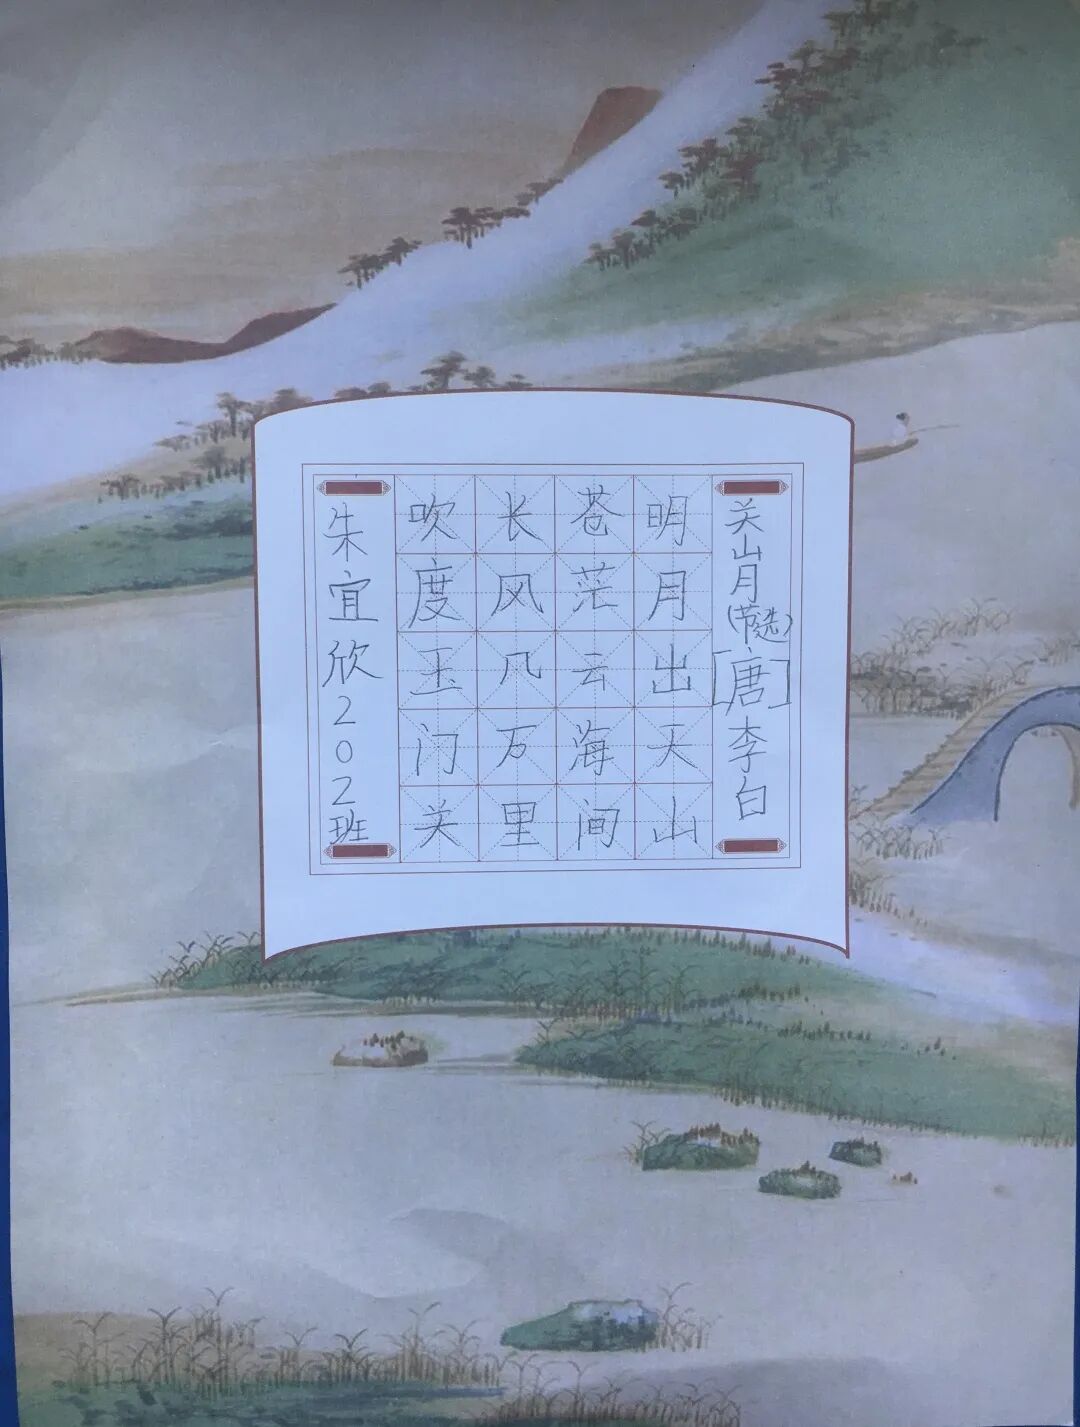 关山月(节选)[唐]李白
明月出天山
苍茫云海间
长风几万里
吹度玉门关
朱宜欣202班